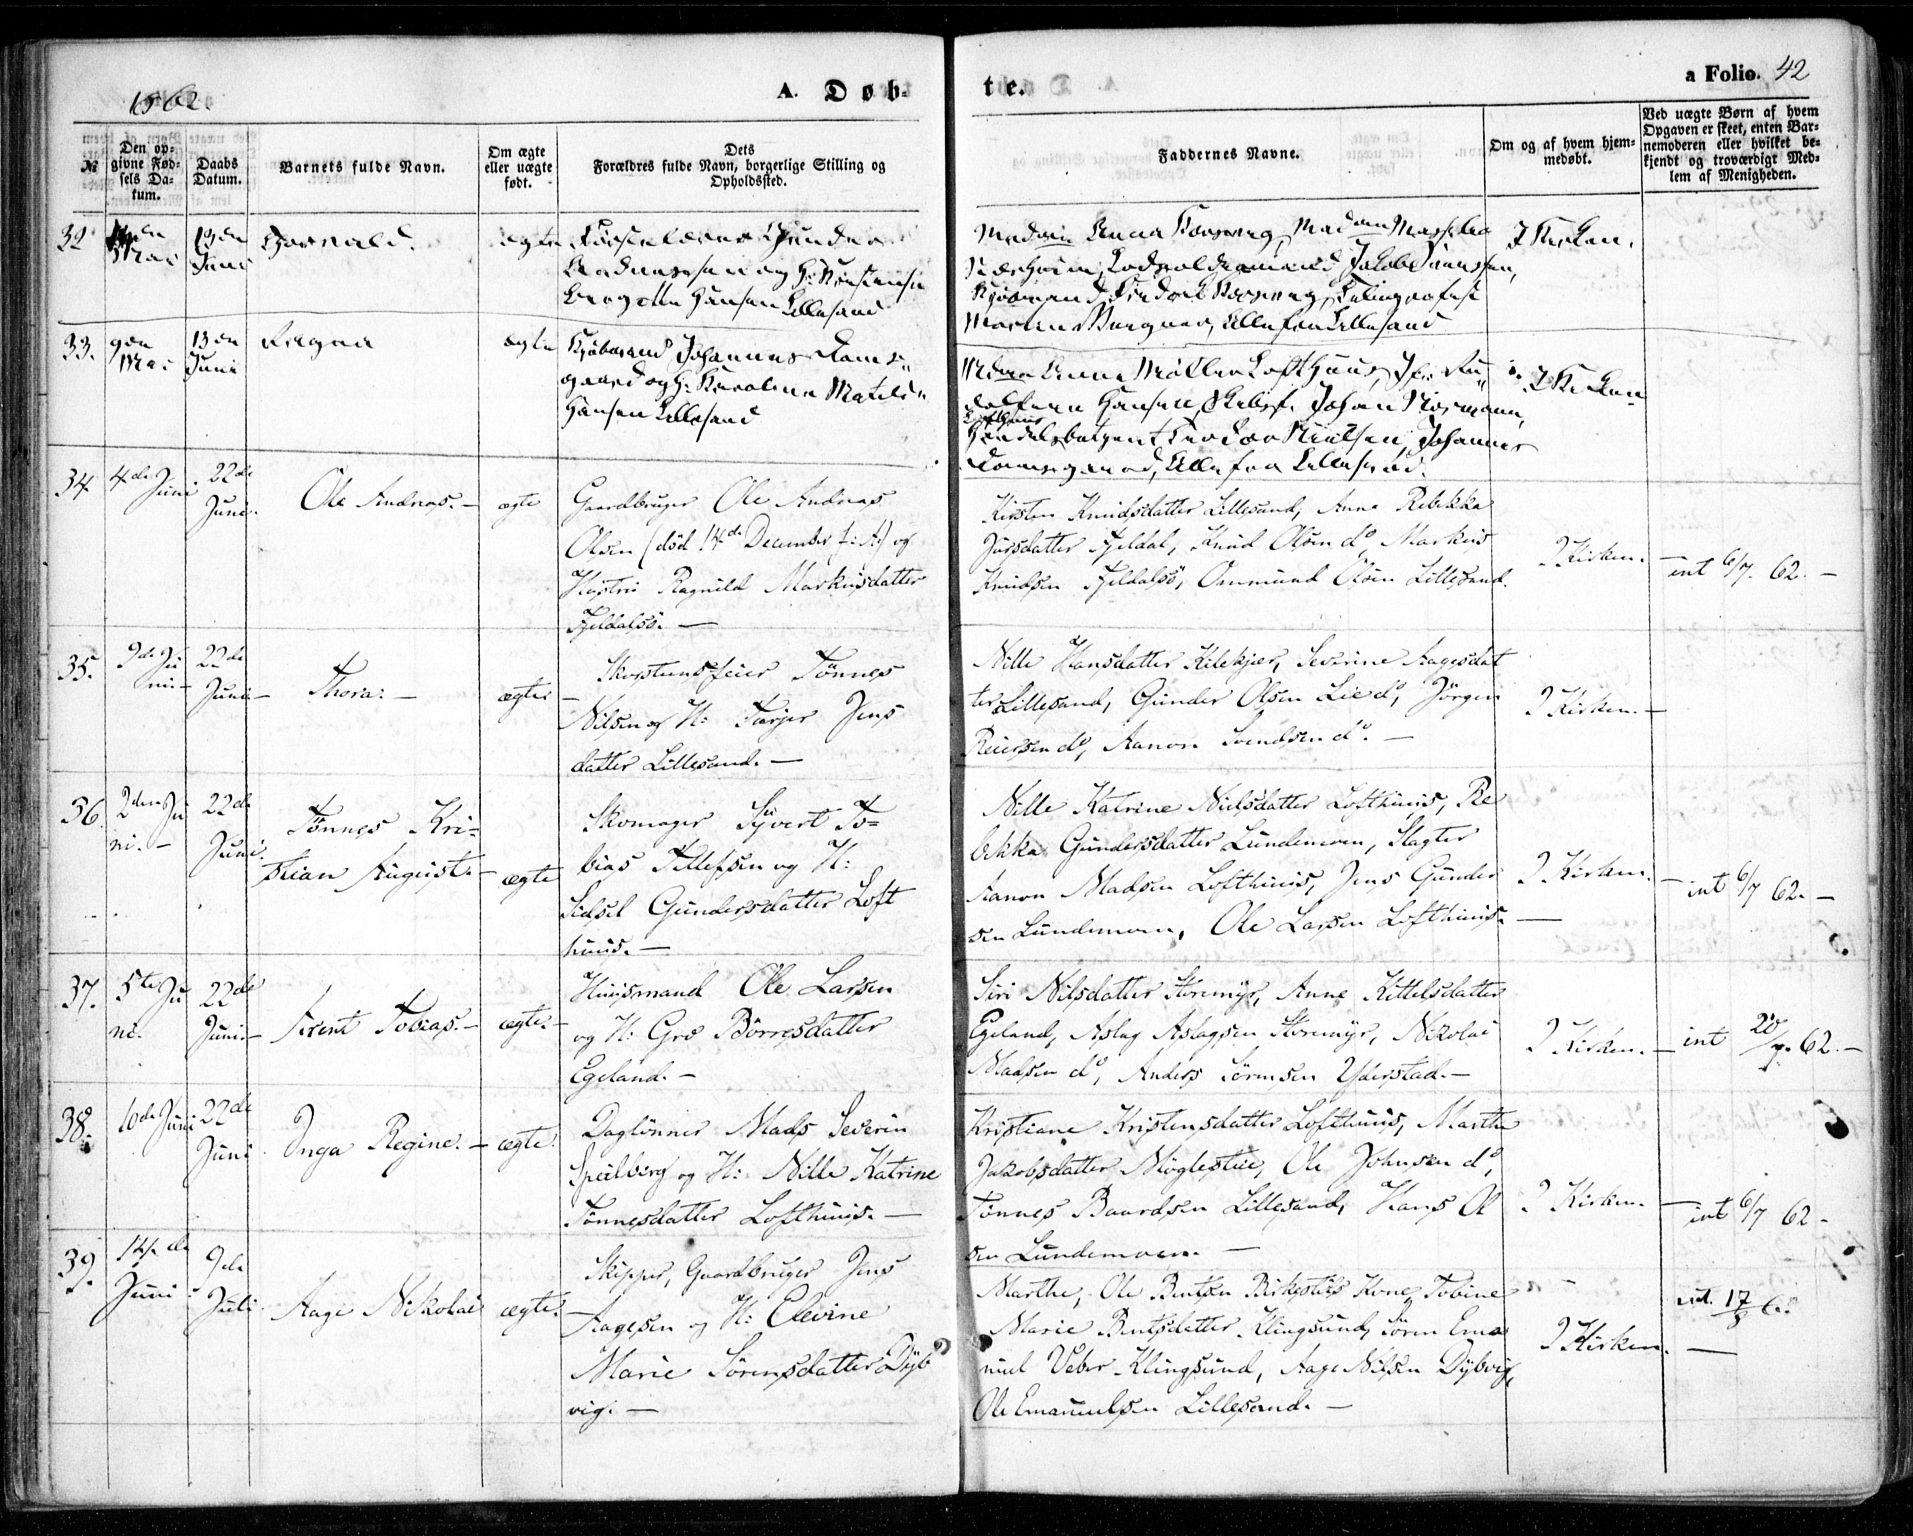 1862.
A. Døb-
te.
a Folio. 42
№
Den op-
givne Fød-
sels Da-
tum.
Daabs
Datum.
Barnets fulde Navn.
Om ægte
eller uægte
født.
Dets
Forældres fulde Navn, borgerlige Stilling og
Opholdssted.
Faddernes Navne.
Om og af hvem hjem-
medøbt.
Ved uægte Børn af hvem
Opgaven er skeet, enten Bar-
nemoderen eller hvilket be-
kjendt og troværdigt Med-
lem af Menigheden.
32
Mai
13den
Juni
ægte
og H:
Hansen Lillesand
Madam Anna
Jakob
Alle fra Lillesand
I Kirken.
33.
9den
Mai
13den
Juni
Ragna
ægte
Kjøbmand Johannes Dams-
gaard og H: Karoline Matilde
Hansen Lillesand
Madam Anna Møller Lofthuus, Jfr. Ru-
dolfine Hansen, Johan
Lofthuus
Nielsen, Johannes
Damsgaard, Alle fra Lillesand.
I Kirken
34.
4de Juni
22de
Juni.
Ole Andreas. —
ægte
Gaardbruger Ole Andreas
Olsen (død 14de December f: A:) og
Hustru Ragnild Markusdatter
Fjeldalsø. —
Kirsten Knudsdatter Lillesand, Anne Rebekka
Fjeldal, Knud Olsen do, Markus
Knudsen Fjeldalsø, Osmund Olsen Lillesand.
I Kirken. —
int 6/7. 62. —
35.
9de Ju
ni. —
22de
Juni —
Thora: —
ægte: —
Skorstensfeier Tønnes
Nilsen og H: Tarjer Jens
datter Lillesand. —
Nille Hansdatter Kilekjær, Severine Aagesdat
ter Lillesand, Gunder Olsen Lie do, Jørgen
Reiersen do, Aanon Svendsen do. —
I Kirken. —
36.
2den Ju
ni. —
22de
Juni.
Tønnes Kri-
stian August. —
ægte
Skomager Syvert To-
bias Tellefsen og H:
Sidsel Gundersdatter Loft
huus. —
Nille Katrine Nielsdatter Lofthuus, Re
bekka Gundersdatter Lundemoen, Slagter
Aanon Madsen Lofthuus, Jens Gunder
sen Lundemoen, Ole Larsen Lofthuus. —
I Kirken. —
int 6/7 62. —
37.
5te Ju
ni.
22de
Juni —
Arent Tobias. —
ægte. —
Huusmand Ole Larsen
og H: Gro Børresdatter
Egeland. —
Siri Nilsdatter Storemyr, Anne Kittelsdatter
Egeland, Aslag Aslagsen Storemyr, Nikolai
Madsen do, Anders Sørensen Yderstad. —
I Kirken. —
int 20/7. 62. —
38.
10de Juni
22de
Juni
Inga Regine. —
ægte.
Dagлønner Mads Severin
Speilberg og H: Nille Katrine
Tønnesdatter Lofthuus. —
Kristiane Kristensdatter Lofthuus, Marthe
Jakobsdatter Møglestue, Ole Johnsen do,
Tønnes Baardsen Lillesand, Hans Ol
sen Lundemoen. —
I Kirken. —
int 6/7 62 —
39.
14de
Juni
9de
Juli
Aage Nikolai
ægte. —
Skipper, Gaardbruger Jens
Aagesen og H: Elevine
Marie Sørensdatter Dyb
vig. —
Marthe, Ole Bentsen Birkestøls Kone, Tobine
Marie Bentsdatter Klingsund, Søren Ema
nuel Veber Klingsund, Aage Nilsen Dybvig,
Ole Emanuelsen Lillesand. —
I Kirken. —
int. 17/8 62